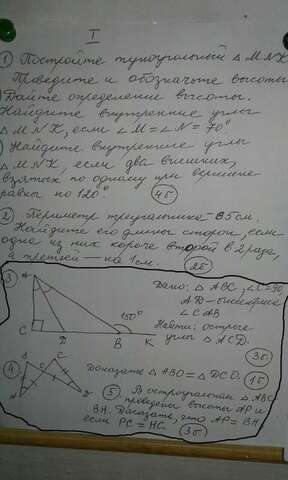 I
① Постройте тупоугольный △ MNK
Проведите и обозначьте высоты
Дайте определение высоты.
Найдите внутренние углы
△ MNK, если ∠M = ∠N = 70°
) Найдите внутренние углы
△ MNK, если два внешних,
взятых по одному при вершине
равны по 120°. 4б
② Периметр треугольника - 85см.
Найдите его длины сторон, если
одна из них короче второй в 2 раза,
а третьей — на 1см. 2б
③ A C D B K 150°
Дано: △ ABC, ∠C=90,
AD - биссектриса
∠ CAB
Найти: острые
углы △ ACD.
3б
④ B C O A D
Доказать △ ABO = △ DCO. 1б
⑤. В остроугольном △ ABC
проведены высоты AP и
BH. Доказать, что AP = BH
если PC = HC. 3б.